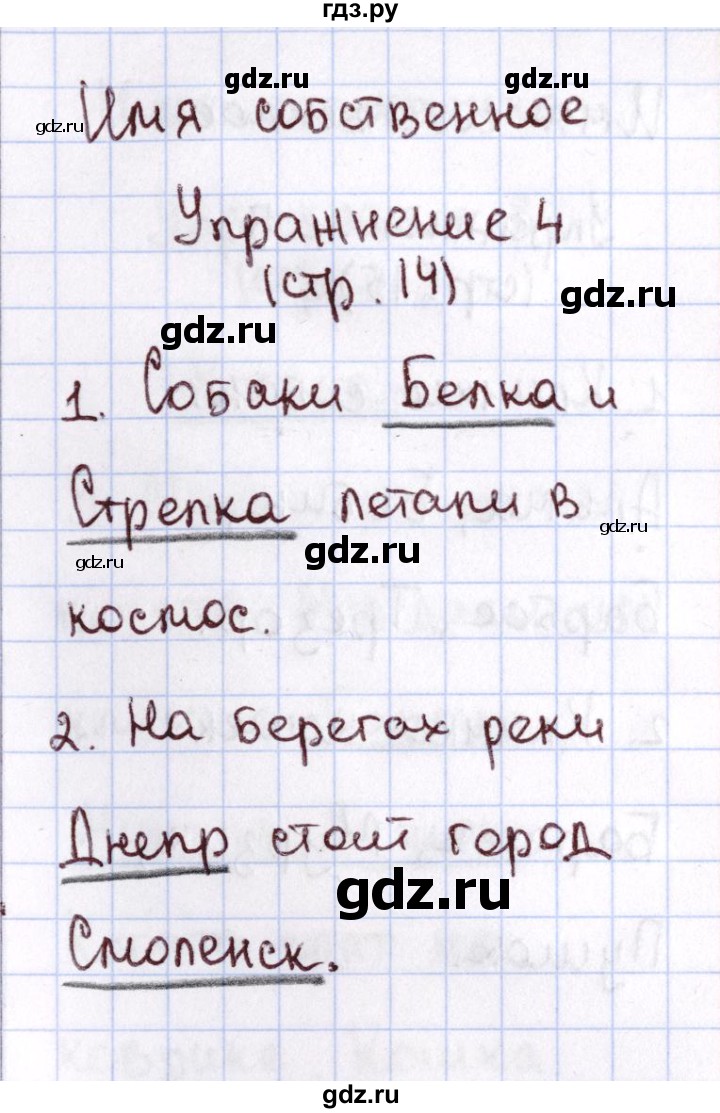 гдз.ру
gdz.ru gdz.ru
gdz.ru Имя собственное
Упражнение 4
(стр. 14) gdz.ru
gdz.ru
1. Собаки Белка и
Стрелка летали в gdz.ru
gdz.ru gdz.ru
космос.
2. На берегах реки
Днепр стоит город
gdz.ru
Смоленск.
gdz.ru